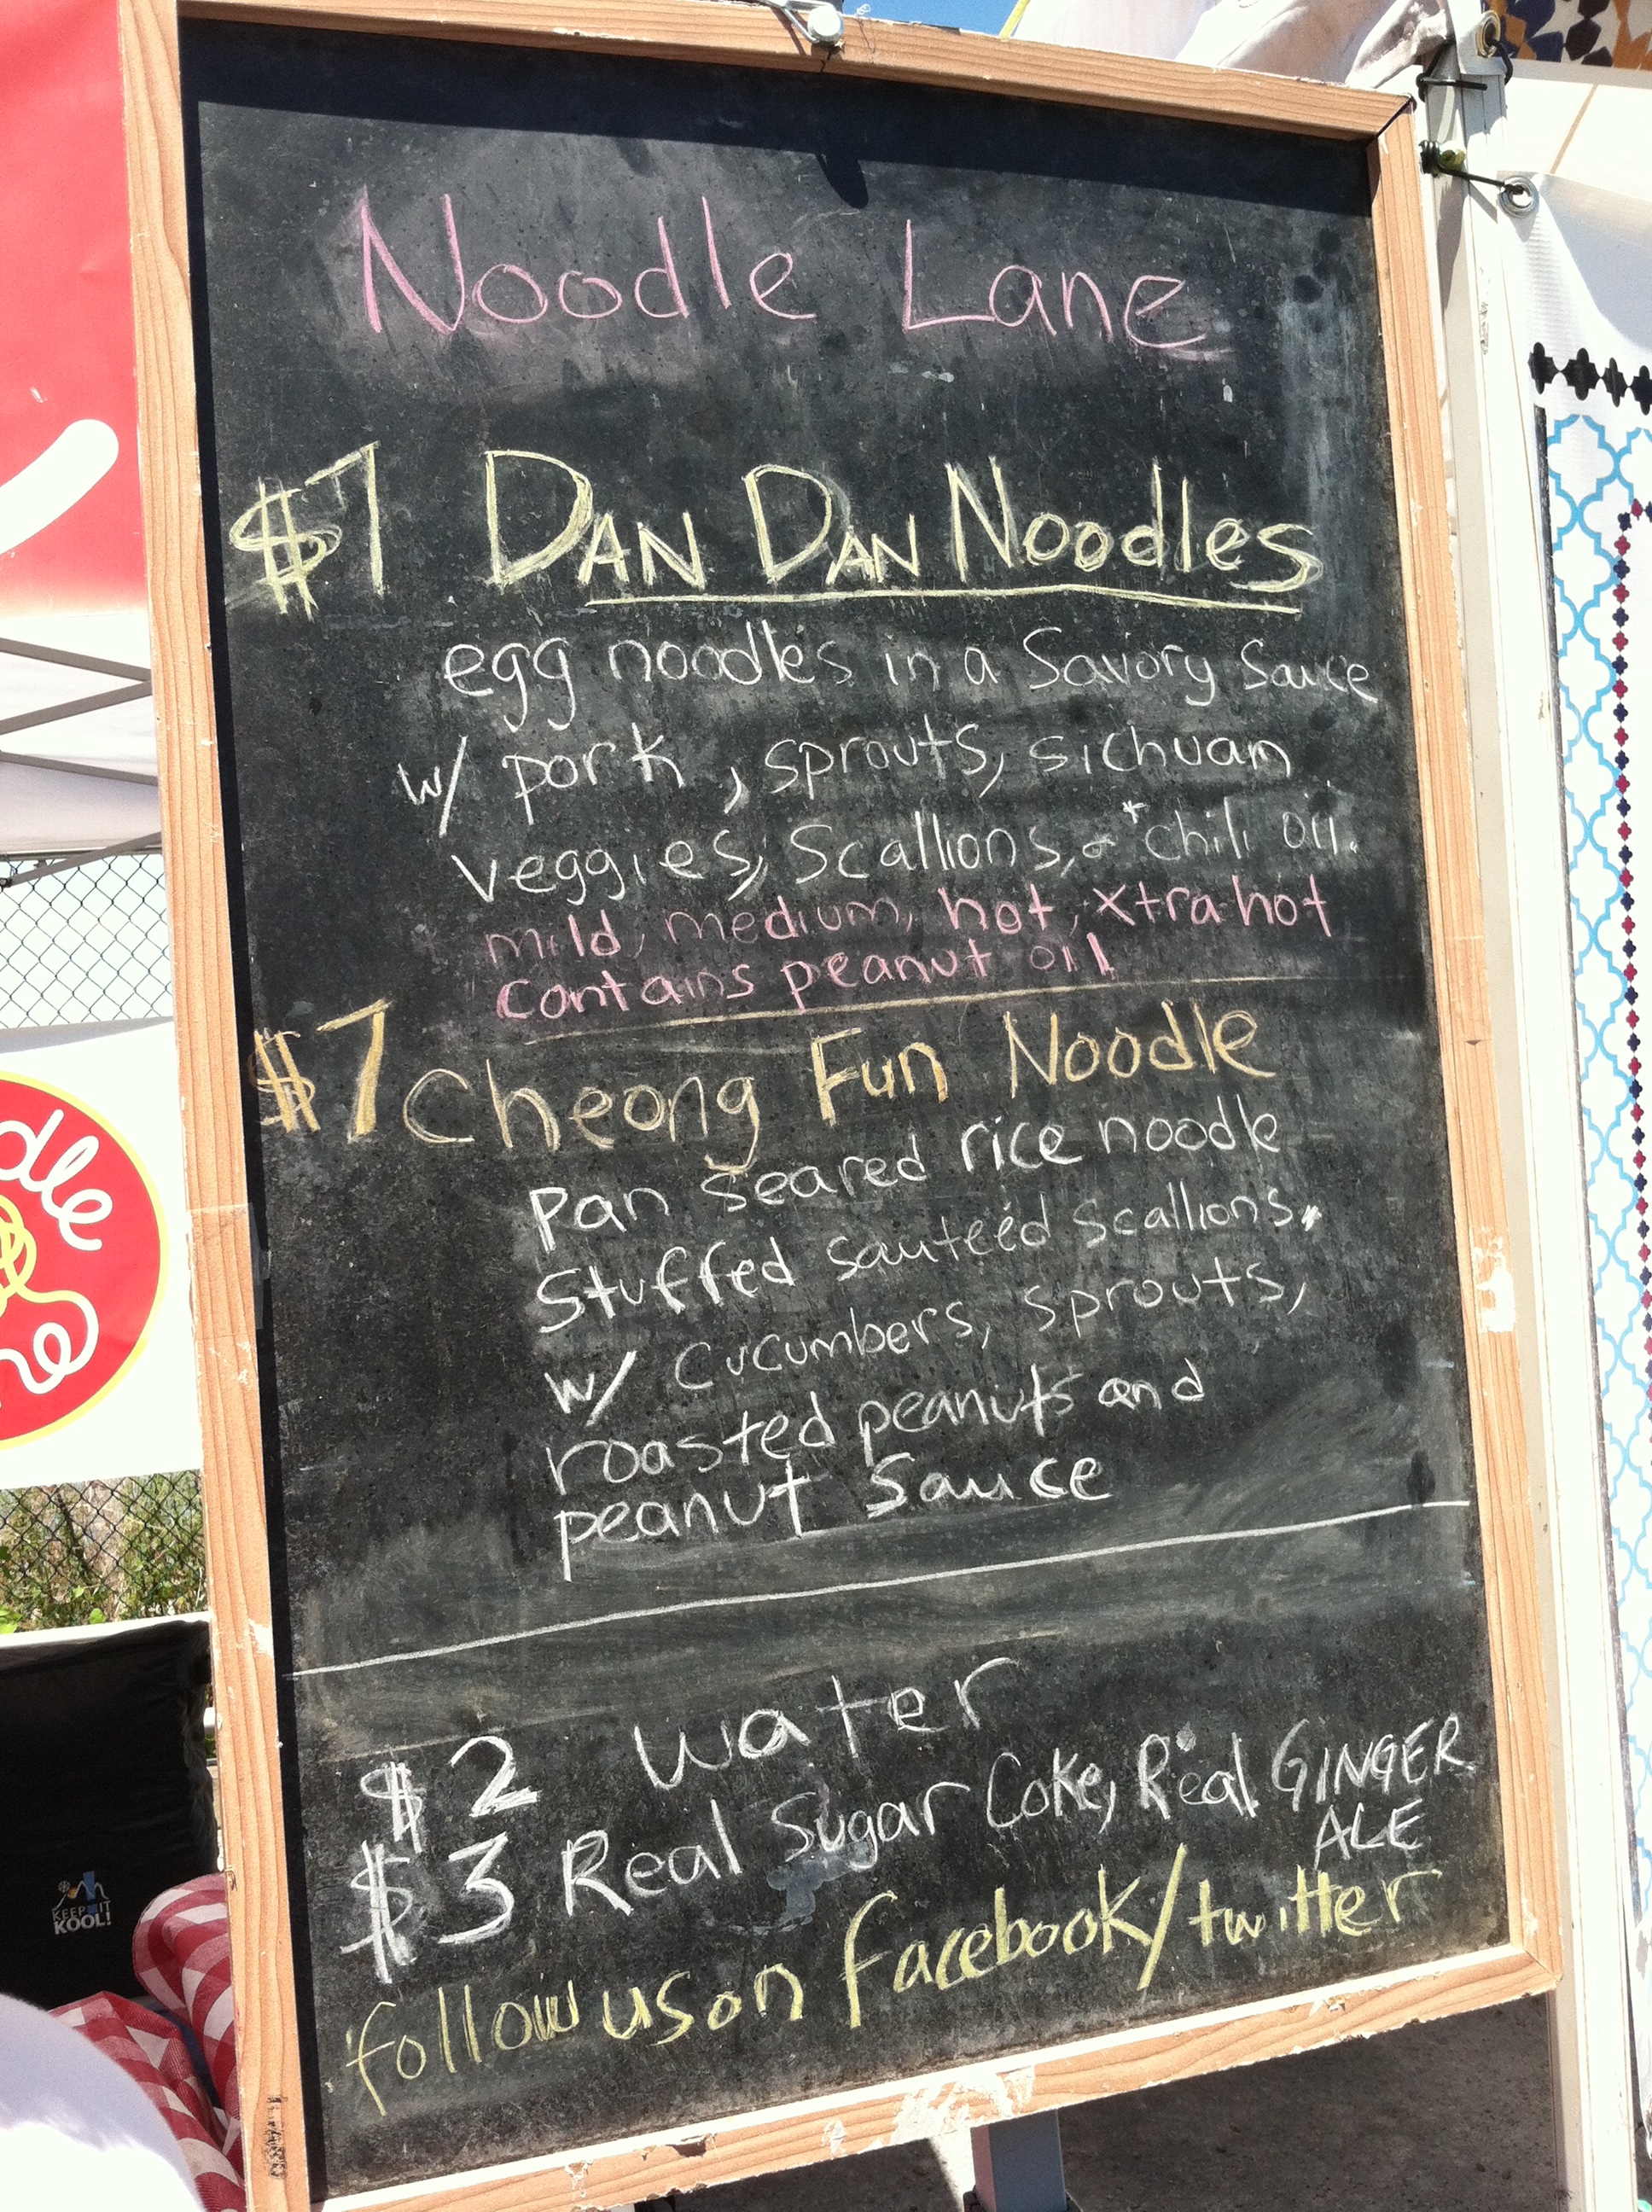 Noodle Lane
$7 DAN DAN Noodles
egg noodles in a Savory Sauce
w/ pork, sprouts, sichuan
veggies, Scallions, & *chili oil.
mild, medium, hot, xtra hot
contains peanut oil
$7 Cheong Fun Noodle
Pan seared rice noodle
Stuffed sauteéd scallions.
w/ cucumbers, sprouts,
roasted peanuts and
peanut sauce
$2 water
$3 Real Sugar Coke, Real GINGER
ALE
follow us on facebook/twitter
KEEP IT
KOOL!